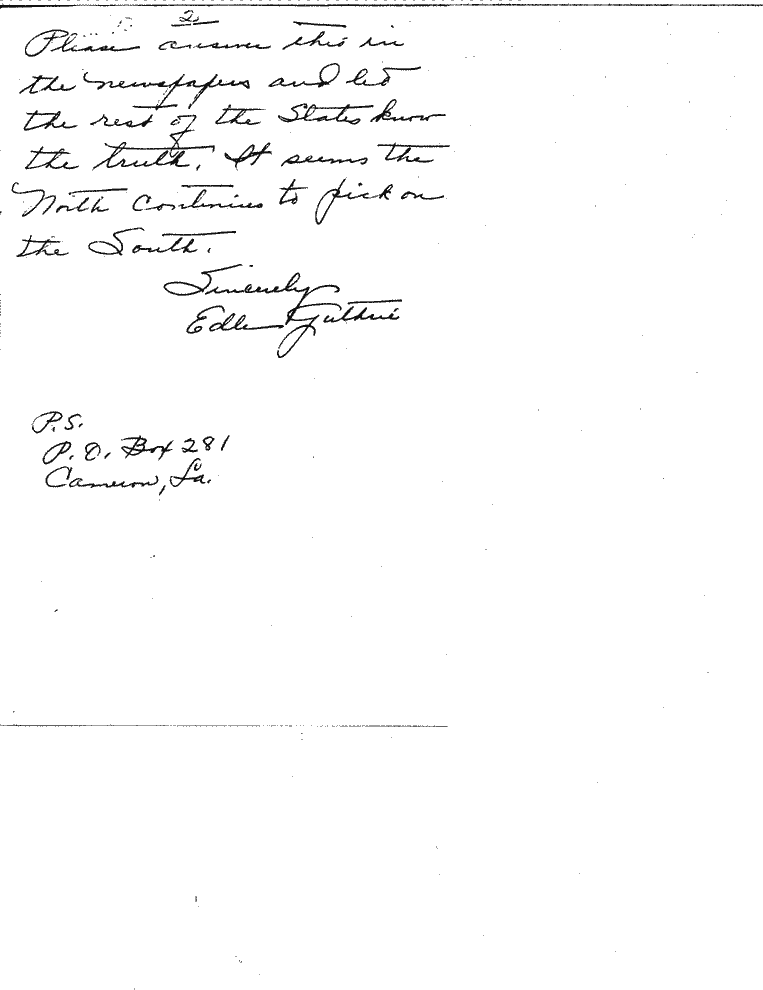 2.
Please answer this in
the newspapers and let
the rest of the States know
the truth. It seems the
North continues to pick on
the South.
Sincerely
Guthrie
P.S.
P.O. Box 281
Cameron, La.